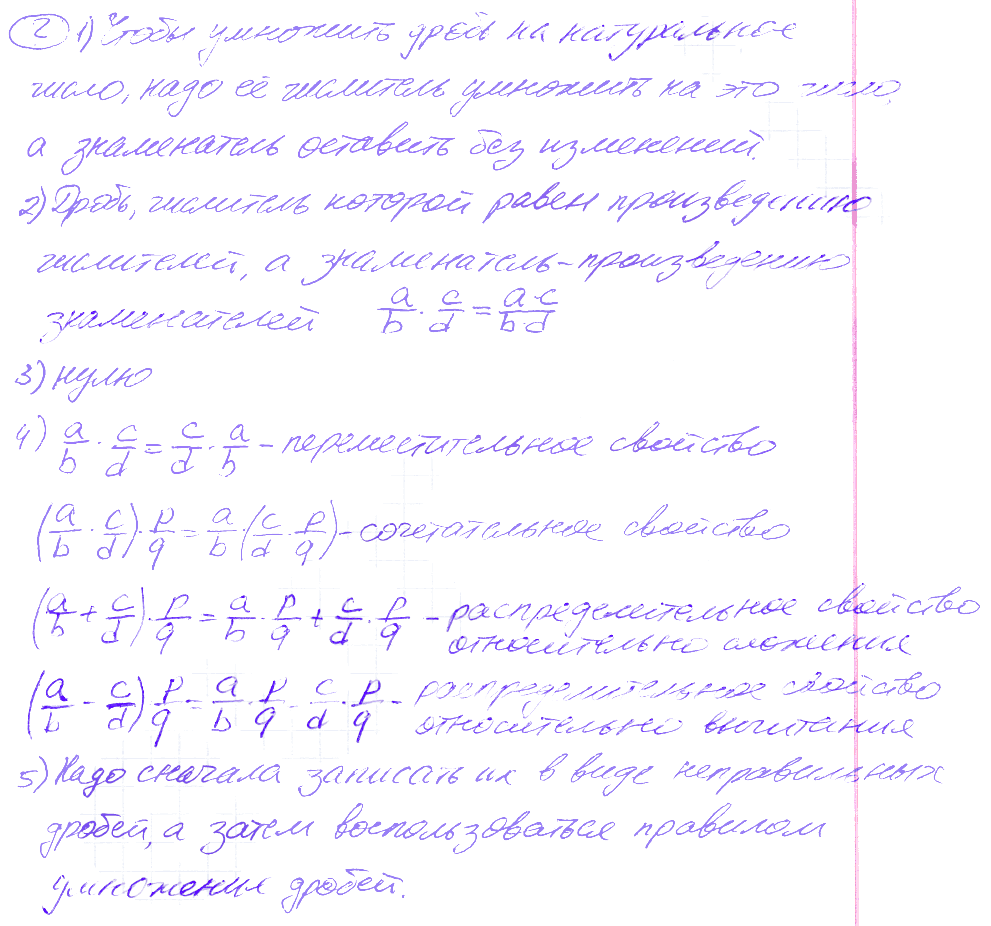 2 1) Чтобы умножить дробь на натуральное
число, надо её числитель умножить на это число,
а знаменатель оставить без изменений.
2) Дробь, числитель которой равен произведению
числителей, а знаменатель - произведению
знаменателей a/b · c/d = a·c/bd
3) нулю
4) a/b · c/d = c/d · a/b - переместительное свойство
(a/b · c/d) · p/q = a/b · (c/d · p/q) - сочетательное свойство
(a/b + c/d) · p/q = a/b · p/q + c/d · p/q - распределительное свойство
относительно сложения
(a/b - c/d) p/q = a/b · p/q - c/d · p/q - распределительное свойство
относительно вычитания
5) Надо сначала записать их в виде неправильных
дробей, а затем воспользоваться правилом
умножения дробей.